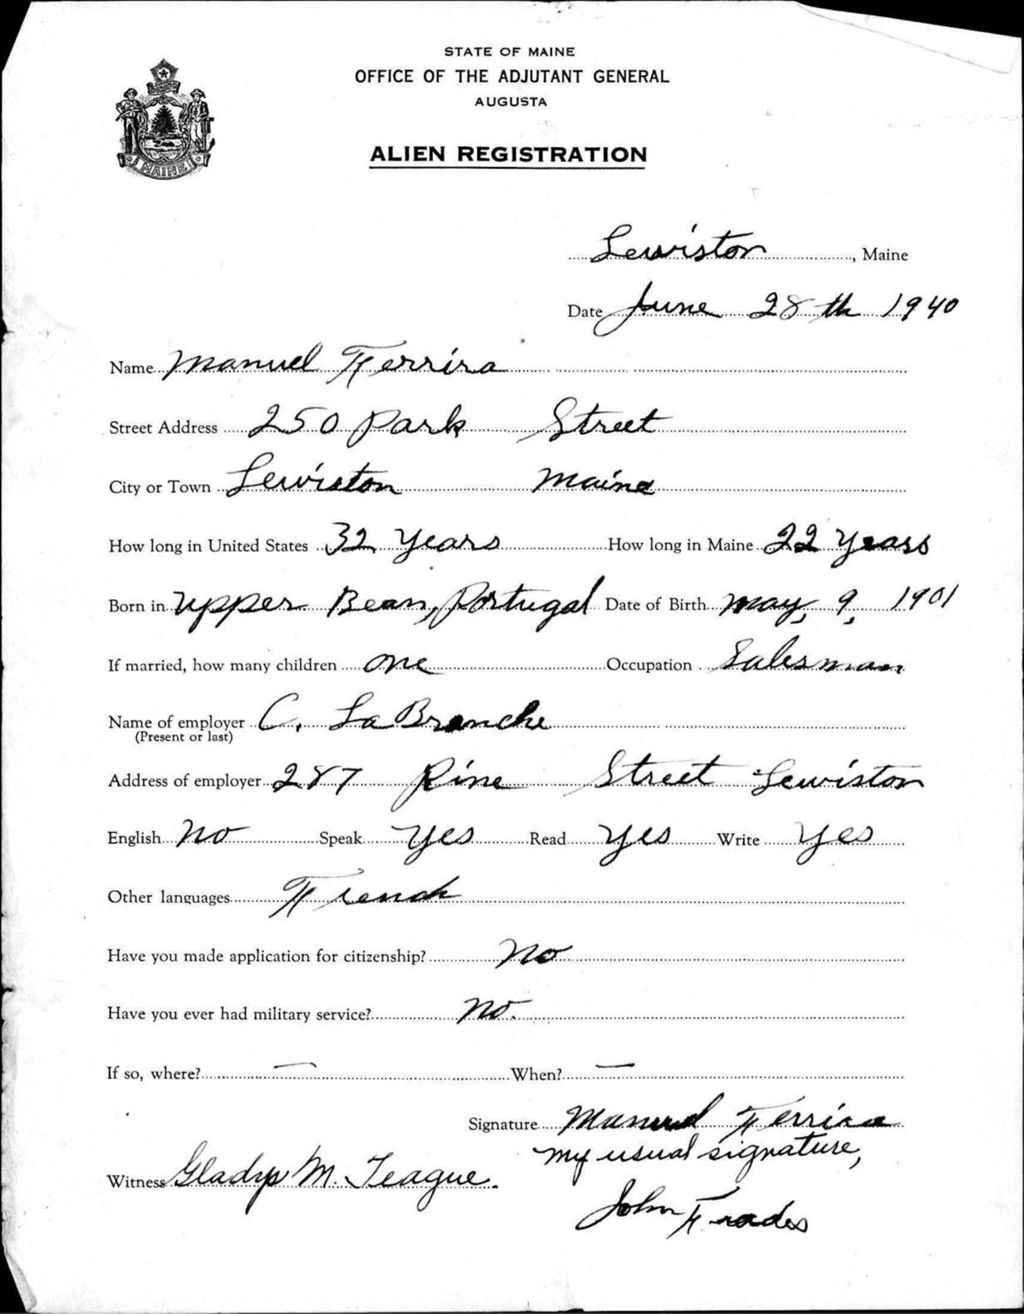 STATE OF MAINE
OFFICE OF THE ADJUTANT GENERAL
AUGUSTA
ALIEN REGISTRATION
MAINE
Lewiston, Maine
Date June 28th 1940
Name Manuel Ferrira
Street Address 250 Park Street
City or Town Lewiston Maine
How long in United States 32 Years How long in Maine 22 years
Born in Upper Bean, Portugal Date of Birth May, 9, 1901
If married, how many children one Occupation Salesman
Name of employer C. LaBranche
(Present or last)
Address of employer 287 Pine Street Lewiston
English No Speak Yes Read Yes Write Yes
Other languages French
Have you made application for citizenship? No
Have you ever had military service? No.
If so, where? — When? —
Signature Manuel Ferrira
my usual signature,
Witness Gladys M. Teague.
John Frades